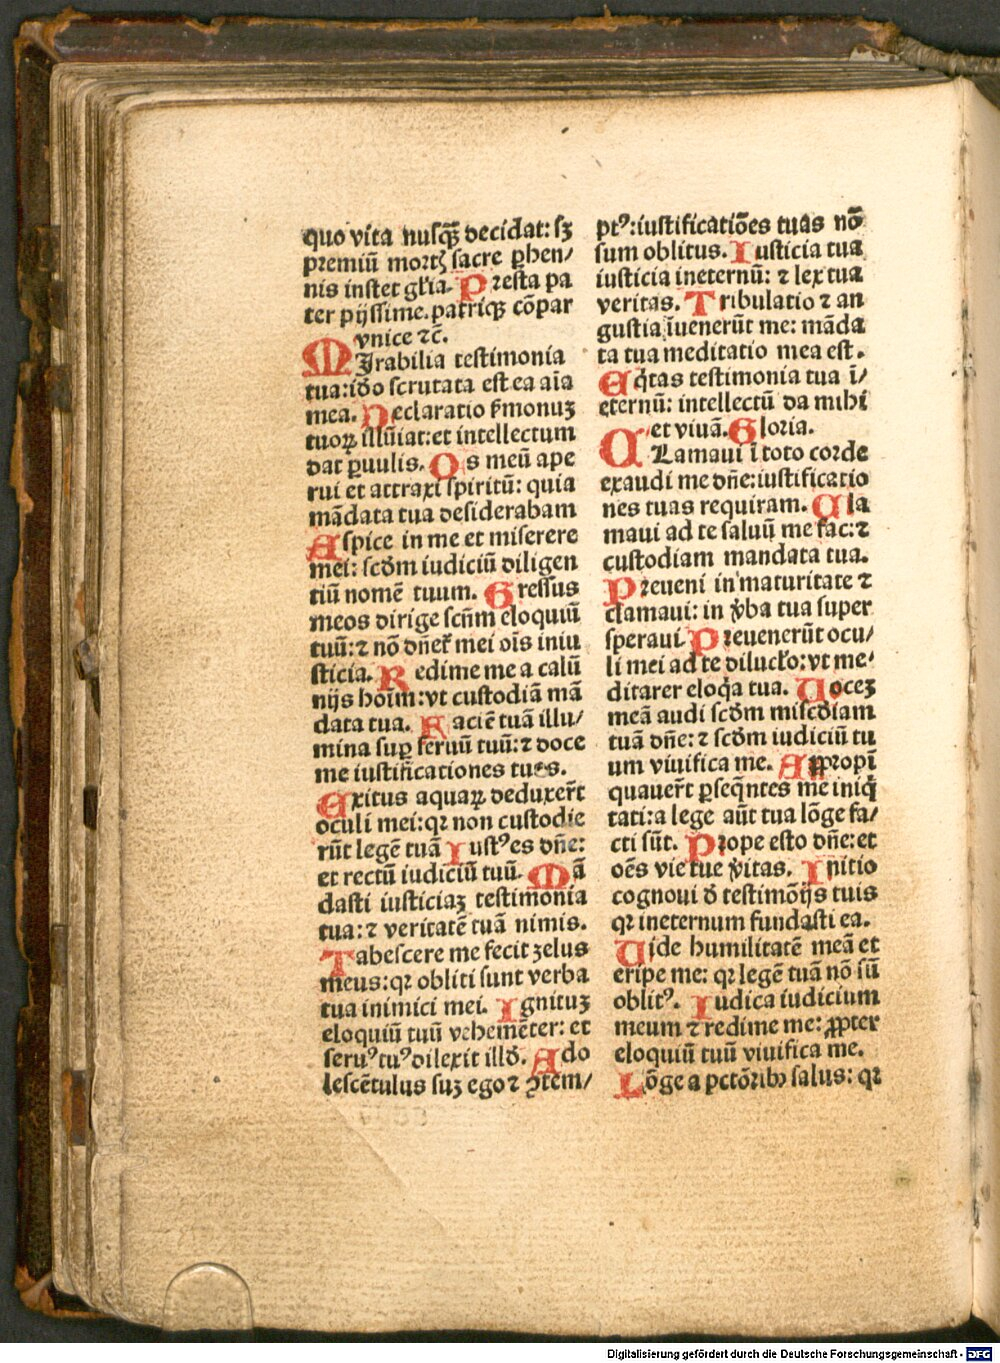 quo vita nusqȝ̄ decidat: sȝ
premiū mortꝭ sacre ꝑhen/
nis instet glꝛia. Presta pa
ter pijssime. patriqȝ cōpar
vnice ⁊c̄.
MIrabilia testimonia
tua: iđo scrutata est ea aīa
mea. Declaratio ẜmonuȝ
tuoꝝ illūiat: et intellectum
dat ꝑuulis. Os meū ape
rui et attraxi spiritū: quia
mādata tua desiderabam
Aspice in me et miserere
mei: scđm iudiciū diligen
tiū nomē tuum. Gressus
meos dirige scꝪm eloquiū
tuū: ⁊ nō dn̄eť mei oīs iniu
sticia. Redime me a calū
nijs hoīm: vt custodiā mā
data tua. Faciē tuā illu/
mina suꝑ seruū tuū: ⁊ doce
me iustificationes tuas.
Exitus aquaꝝ deduxer̄t
oculi mei: qꝛ non custodie
rūt legē tuā Iustꝰ es dn̄e:
et rectū iudiciū tuū. Mā
dasti iusticiaȝ testimonia
tua: ⁊ veritatē tuā nimis.
Tabescere me fecit zelus
meus: qꝛ obliti sunt verba
tua inimici mei. Ignituȝ
eloquiū tuū vehemēter: et
seruꝰ tuꝰ dilexit illđ. Ado
lescētulus suȝ ego ⁊ ꝯtem/
ptꝰ: iustificatiōes tuas nō
sum oblitus. Iusticia tua
iusticia ineternū: ⁊ lex tua
veritas. Tribulatio ⁊ an
gustia īuenerūt me: māda
ta tua meditatio mea est.
Eq̄tas testimonia tua ī/
eternū: intellectū da mihi
et viuā. Gloria.
CLamaui ī toto corde
exaudi me dn̄e: iustificatio
nes tuas requiram. Cla
maui ad te saluū me fac: ⁊
custodiam mandata tua.
Preueni in maturitate ⁊
clamaui: in v̄ba tua super
speraui. Preuenerūt ocu/
li mei ad te dilucl̵o: vt me/
ditarer eloq̄a tua. Uoceȝ
meā audi scđm miscđiam
tuā dn̄e: ⁊ scđm iudiciū tu
um viuifica me. Appropī
quauer̄t ꝑseq̄ntes me iniq̄
tati: a lege aūt tua lōge fa/
cti sūt. Prope esto dn̄e: et
oēs vie tue v̄itas. Initio
cognoui đ testimōijs tuis
qꝛ ineternum fundasti ea.
Uide humilitatē meā et
eripe me: qꝛ legē tuā nō sū
oblitꝰ. Iudica iudicium
meum ⁊ redime me: ꝓpter
eloquiū tuū viuifica me.
Lōge a pctōribꝫ salus: qꝛ
Digitalisierung gefördert durch die Deutsche Forschungsgemeinschaft - DFG